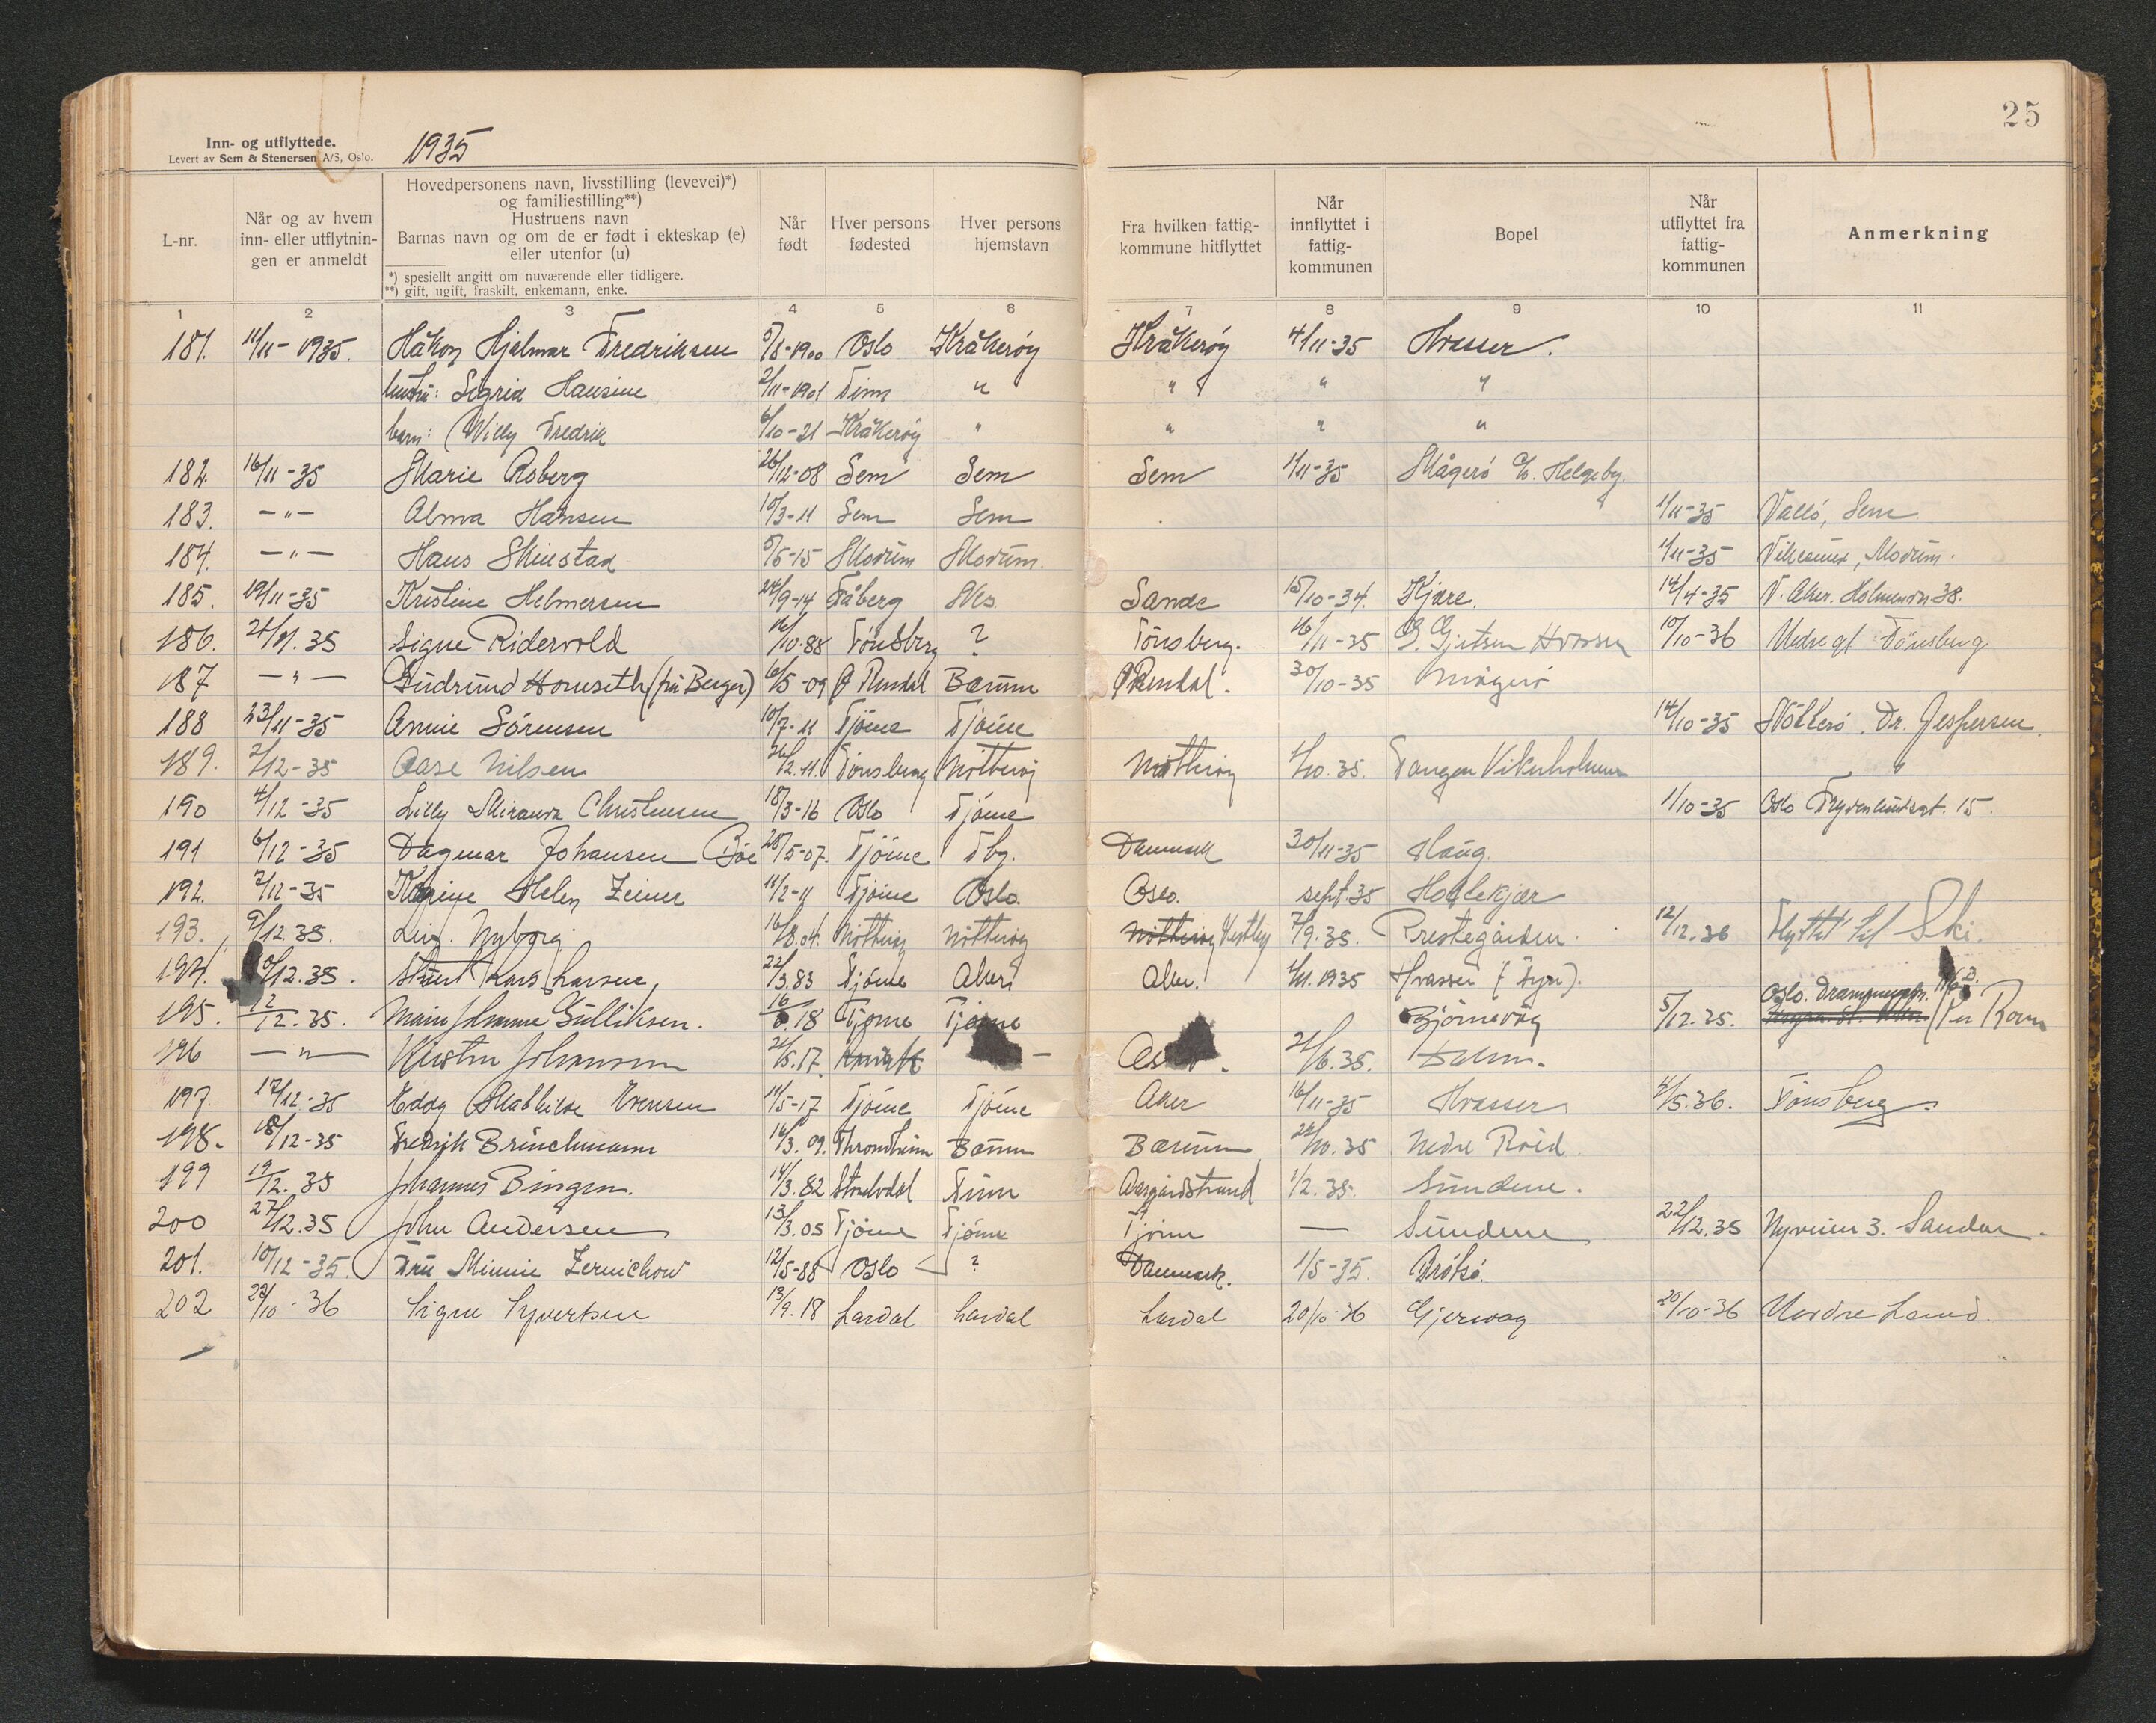 25
Inn- og utflyttede.
Levert av Sem & Stenersen A/S, Oslo.
1935
L-nr.
Når og av hvem inn- eller utflytnin- gen er anmeldt
Hovedpersonens navn, livsstilling (levevei)*)
og familiestilling**)
Hustruens navn
Barnas navn og om de er født i ekteskap (e)
eller utenfor (u)
*) spesiellt angitt om nuværende eller tidligere.
**) gift, ugift, fraskilt, enkemann, enke.
Når født
Hver persons fødested
Hver persons hjemstavn
Fra hvilken fattig- kommune hitflyttet
Når innflyttet i fattig- kommunen
Bopel
Når utflyttet fra fattig- kommunen
Anmerkning
1 2 3 4 5 6 7 8 9 10 11
181. 11/11-1935. Håkon Hjalmar Fredriksen 5/8-1900 Oslo Kråkerøy Kråkerøy 4/11-35 Hvasser.
hustru: Sigrid Hansine 2/11-1901 Tinn " " " "
barn: Willy Fredrik 6/10-21 Kråkerøy " " " "
182. 16/11-35 Marie Asberg 26/12-08 Sem Sem Sem 1/11-35 Mågerö c/o. Helgeby.
183. -"- Alma Hansen 10/3-11 Sem Sem 1/11-35 Vallö, Sem
184. -"- Hans 5/5-15 Modum Modum. 1/11-35 Modum.
185. 19/11-35 Kristine Helmersen 24/9-14 Fåberg Sande 15/10-34. Kjære. 14/4-35 V. Aker. 38.
186. 21/11.35 Signe Ridervold 16/10.88 Tönsberg ? Tönsberg. 16/11-35 Hvasser 10/10-36 Tönsberg
187 -"- Gudrund Homseth (frü Berger) 6/5-09 Ø Rendal Bærum Ø Rendal. 30/10-35 Mågerö
188 23/11-35 Annie Sörensen 10/7-11 Tjöme Tjöme 14/10-35 Nötterö. Dr. Jespersen.
189. 2/12-35 Aase Nilsen Tönsberg Nötteröy Nötteröy 1/10.35. Tangen Vikerholmen
190 4/12-35 Lilly Miranda Christensen 18/3-16 Oslo Tjöme 1/10-35 Oslo Frydenlundsgt. 15.
191 6/12-35 Dagmar Johansen Böe 28/5-07. Tjöme Tbg. Danmark 30/11-35 Haug.
192. 7/12-35 Helen Zeiner 11/2-11 Tjöme Oslo. Oslo. sept. 35 Hollekjær
193. 9/12.35. Nyborg 16/8.04. Nötteröy Nötteröy Nötteröy Vestby 7/9.35. Prestegården. 12/12.36 Flyttet til Ski.
194. 10/12.35. Lars Larsen, 22/3.83 Tjöme Aker Aker. 1/11.1935 Hvasser (Fyr).
195. 2/12.35. Johanne Gulliksen. 18 Tjöme Tjöme Bjönevåg 5/12.35. Oslo.
196 -"- Kirstin Johansen 21/5.17. 21/6.35.
197. 17/12-35 Eddy Mathilde Evensen 11/5-17 Tjöme Tjöme Aker 16/11-35 Hvasser 4/5.36. Tönsberg.
198. 18/12-35 Fredrik Brinchmann 14/3.09. Throndheim Bærum Bærum 24/10.35 Nedre Röed
199 19/12.35 Johannes Bingen. 14/3.82 Aasgårdstrand 1/2.35. Sundene.
200 27/12.35 John Andersen 13/3.05 Tjöme Tjöme Tjöme — Sundene 22/12.35 3. Sandar.
201. 10/12-35. Frü Minnie Zernichow 12/5-88 Oslo ? Danmark. 1/5-35. Brötsö.
202 28/10-36 Signe Syvertsen 13/9.18 Lardal Lardal Lardal 20/10-36 Gjervåg 20/10-36 Nordre Land.